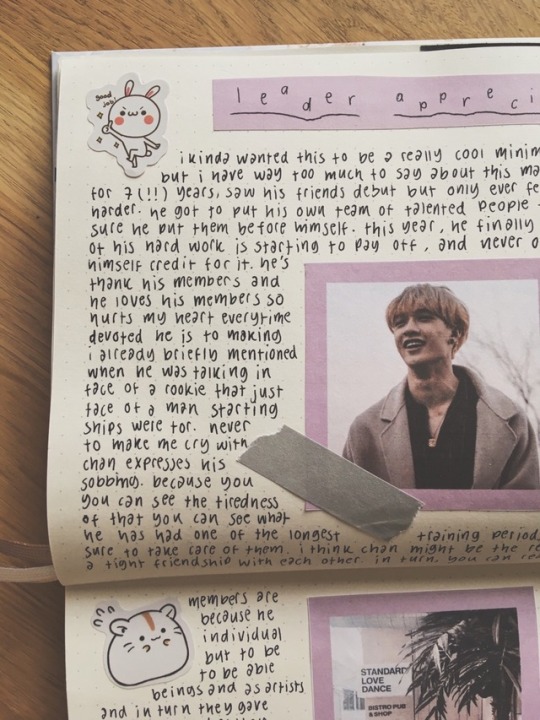 good job
leader appreci
i kinda wanted this to be a really cool minim
but i have way too much to say about this ma
for 7(!!) years, saw his friends debut but only ever fe
harder. he got to put his own team of talented people
sure he put them before himself. this year, he finally
of his hard work is starting to pay off, and never o
himself credit for it. he's
thank his members and
he loves his members so
hurts my heart everytime
devoted he is to making
i already briefly mentioned
when he was talking in
face of a rookie that just
face of a man starting
ships were for. never
to make me cry with
chan expresses his
sobbing. because you
you can see the tiredness
of that you can see what
he has had one of the longest training period
sure to take care of them. i think chan might be the re
a tight friendship with each other. in turn, you can re
members are
because he
individual
but to be
to be able
beings and as artists
and in turn they gave
STANDARD
LOVE
DANCE
BISTRO PUB
& SHOP